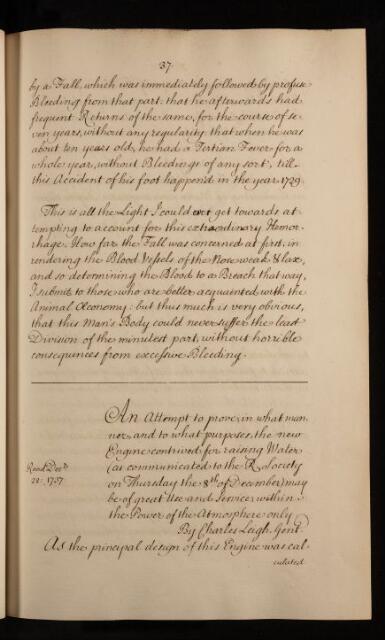 37
by a Fall, which was immediately followed by profuse
Bleeding from that part: that he afterwards had
frequent Returns of the same, for the course of se-
ven years, without any regularity: that when he was
about ten years old, he had a Tertian Fever for a
whole year, without Bleedings of any sort, till
this Accident of his foot happen'd in the year 1729.
This is all the Light I could ever get towards at
tempting to account for this extraordinary Hemor-
rhage. How far the Fall was concerned at first, in
rendering the Blood Vessels of the Nose weak & lax,
and so determining the Blood to a Breach that way,
I submit to those who are better acquainted with the
Animal Œconomy: but thus much is very obvious,
that this Man's Body could never suffer the least
Division of the minutest part, without horrible
consequences from excessive Bleeding.
An Attempt to prove, in what man
ner, and to what purposes, the new
Engine contrived for raising Water
Read Decr.
(as communicated to the R. Society
22. 1737
on Thursday the 8th of December) may
be of great Use and Service within
the Power of the Atmosphere only
By Charles Leigh. Gent.
As the principal design of this Engine was cal-
culated